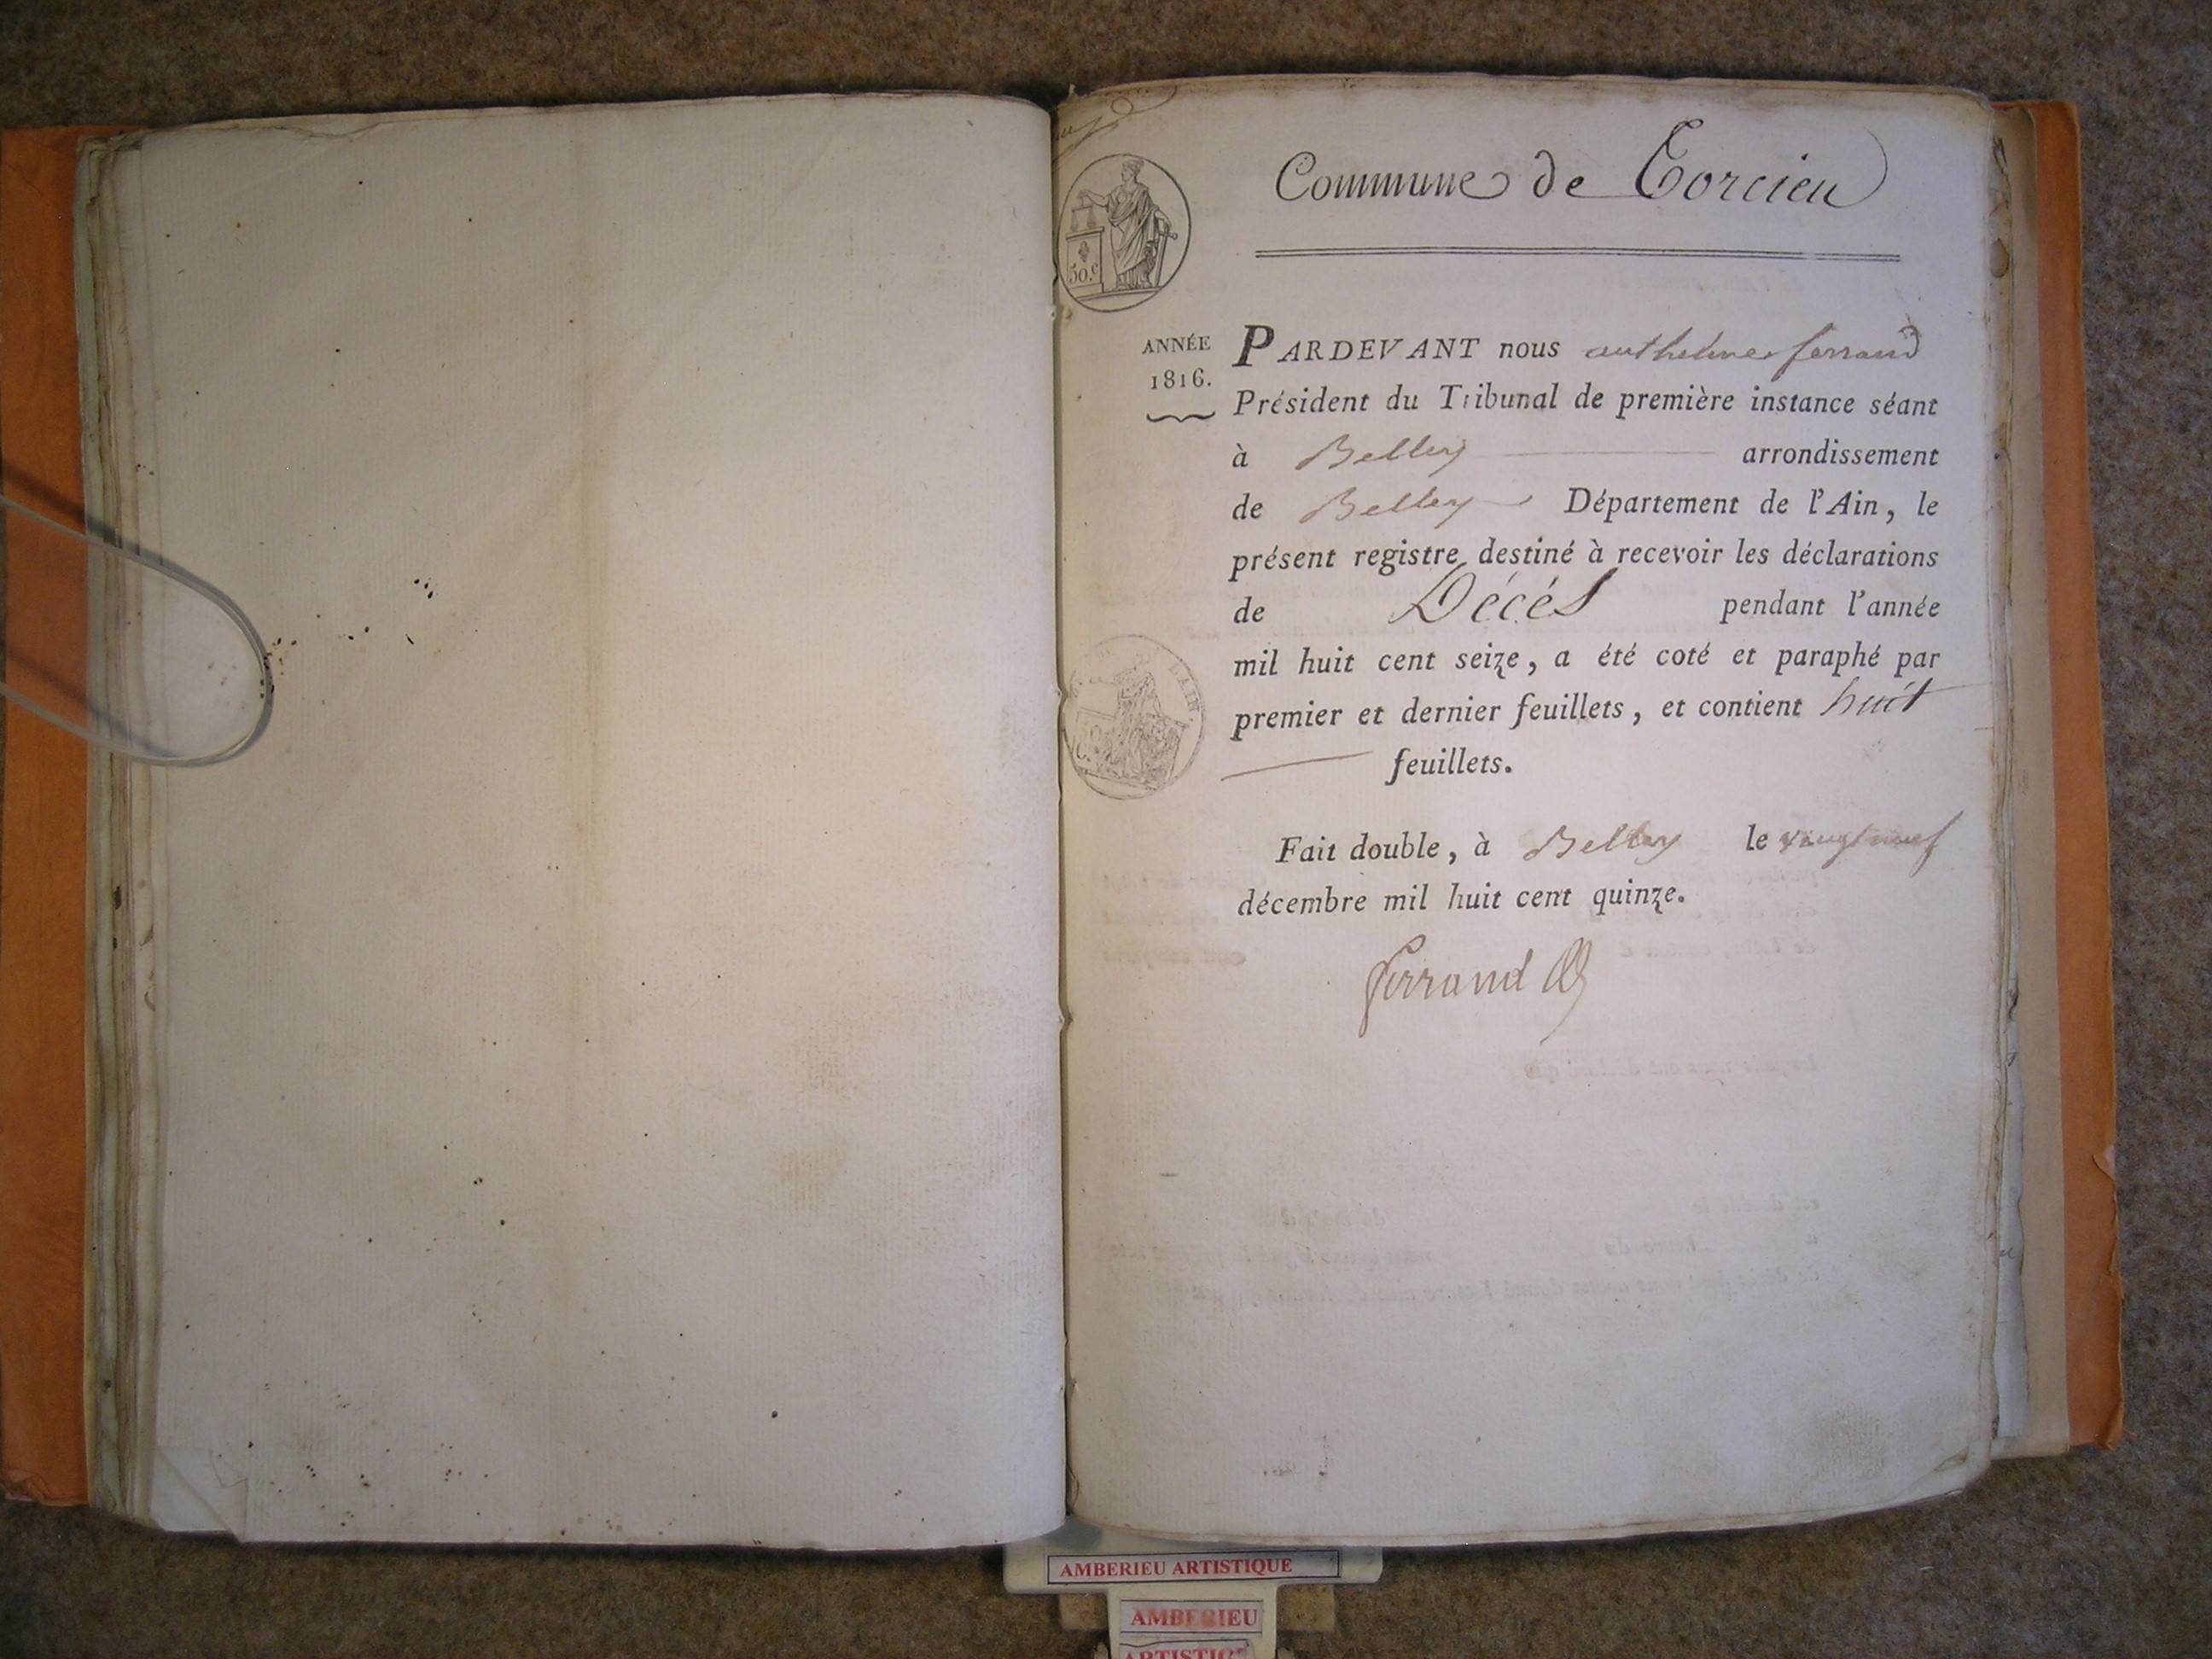 Commune de Torcieu
50.c
ANNÉE
1816.
PARDEVANT nous anthelme ferrand
Président du Tribunal de première instance séant
à Belley arrondissement
de Belley Département de l'Ain, le
présent registre destiné à recevoir les déclarations
de Décés pendant l'année
mil huit cent seize, a été coté et paraphé par
premier et dernier feuillets, et contient huit
feuillets.
AIN.
Fait double, à Belley le vingt neuf
décembre mil huit cent quinze.
ferrand
AMBERIEU ARTISTIQUE
AMBERIEU